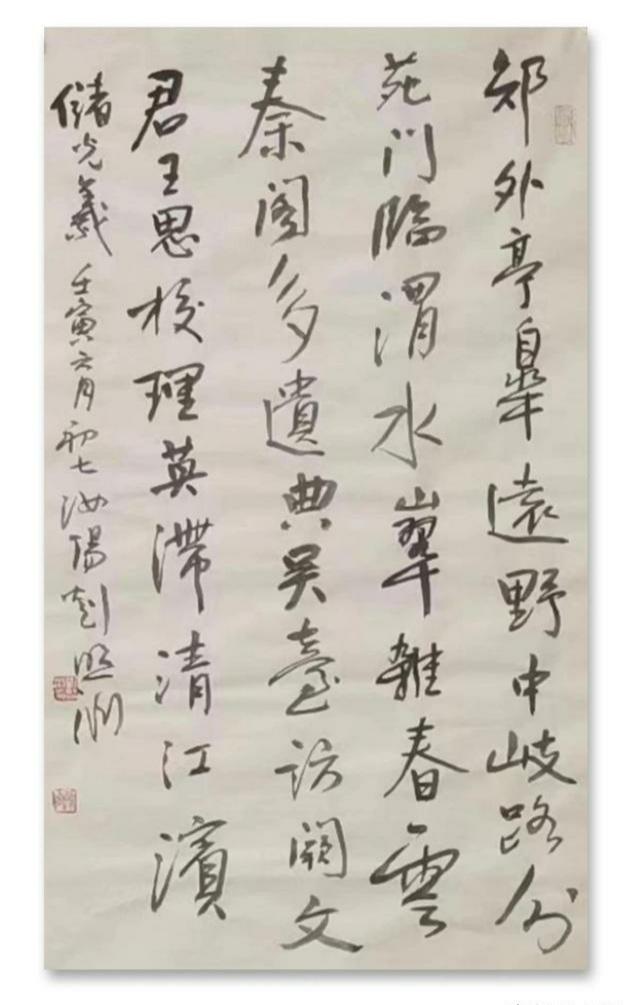 郊外亭皋遠野中岐路分
苑門臨渭水山翠雜春雲
秦閣多遺典吴臺訪闕文
君王思校理英滯清江濱
儲光羲 壬寅六月初七汝陽